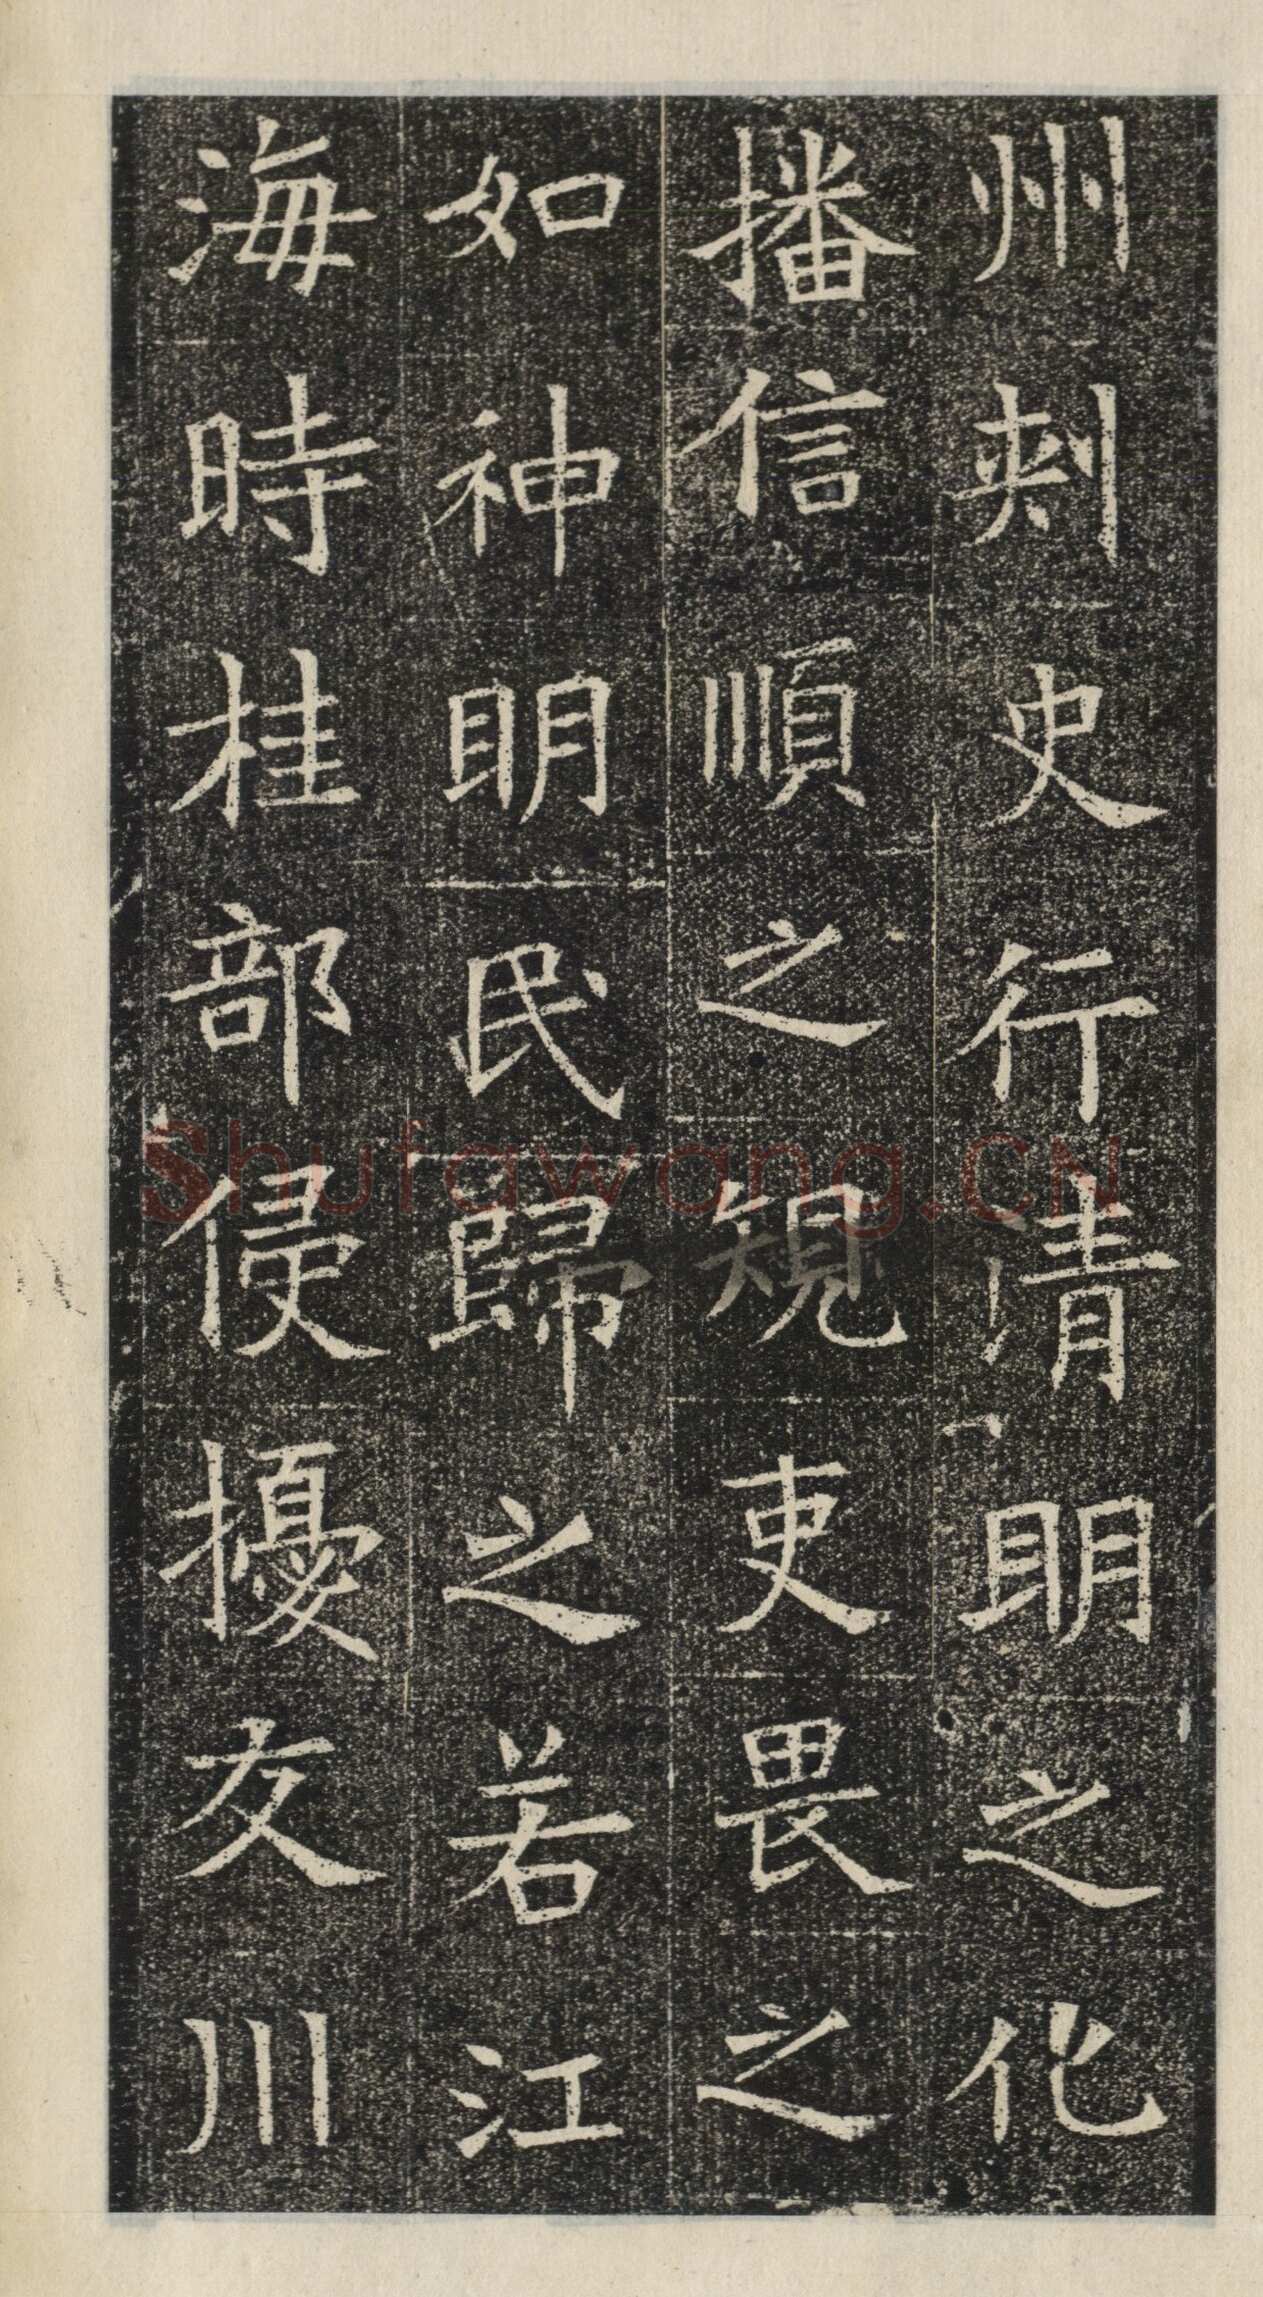 州刾史行清明之化
播信順之規吏畏之
如神明民歸之若江
海時桂部侵擾交川
Shufawang.CN